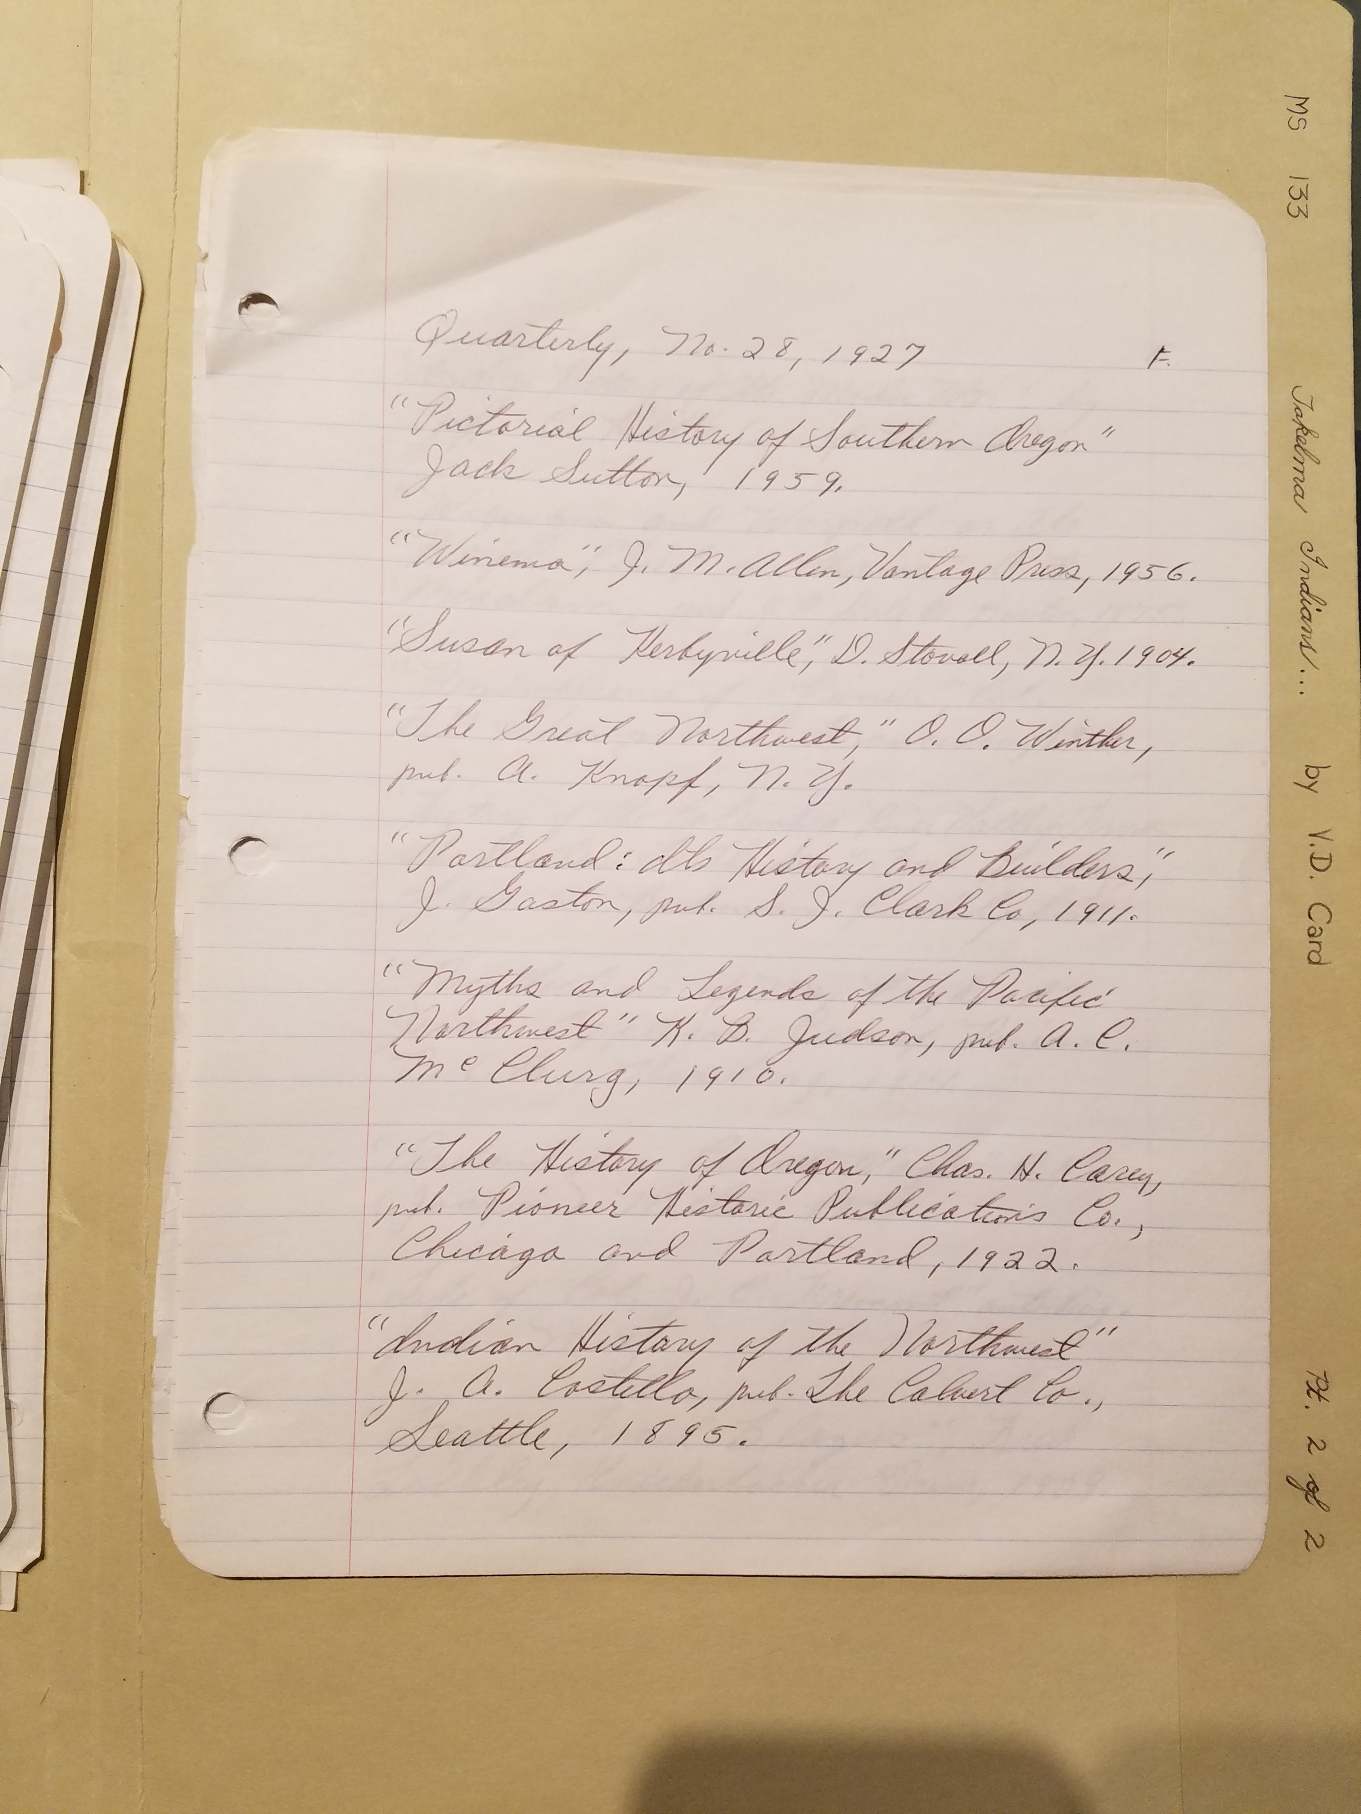 Quarterly, No. 28, 1927 F.
"Pictorial History of Southern Oregon"
Jack Sutton, 1959.
"Winema", J. M. Allen, Vantage Press, 1956.
"Susan of Kerbyville," D. Stovall, N.Y. 1904.
"The Great Northwest," O. O. Winther,
pub. A. Knopf, N.Y.
"Portland: Its History and Builders,"
J. Gaston, pub. S. J. Clark Co, 1911.
"Myths and Legends of the Pacific
Northwest" K. B. Judson, pub. A. C.
McClurg, 1910.
"The History of Oregon," Chas. H. Carey,
pub. Pioneer Historic Publications Co.,
Chicago and Portland, 1922.
"Indian History of the Northwest"
J. A. Costello, pub. The Calvert Co.,
Seattle, 1895.
MS 133 Takelma Indians... by V.D. Card Pt. 2 of 2